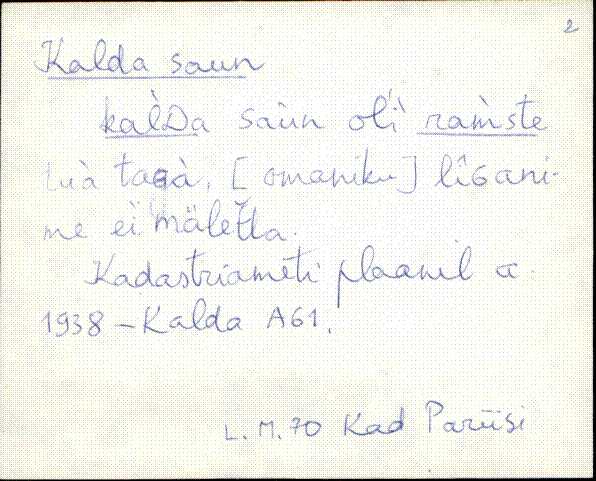 2
Kalda saun
kal̀Da saùn ol'i ram̀ste
tuà taGà, [omaniku] lîGani-
me ei mäleťta.
Kadastriameti plaanil a.
1938 – Kalda A61.
L.M.70 Kad Pariisi